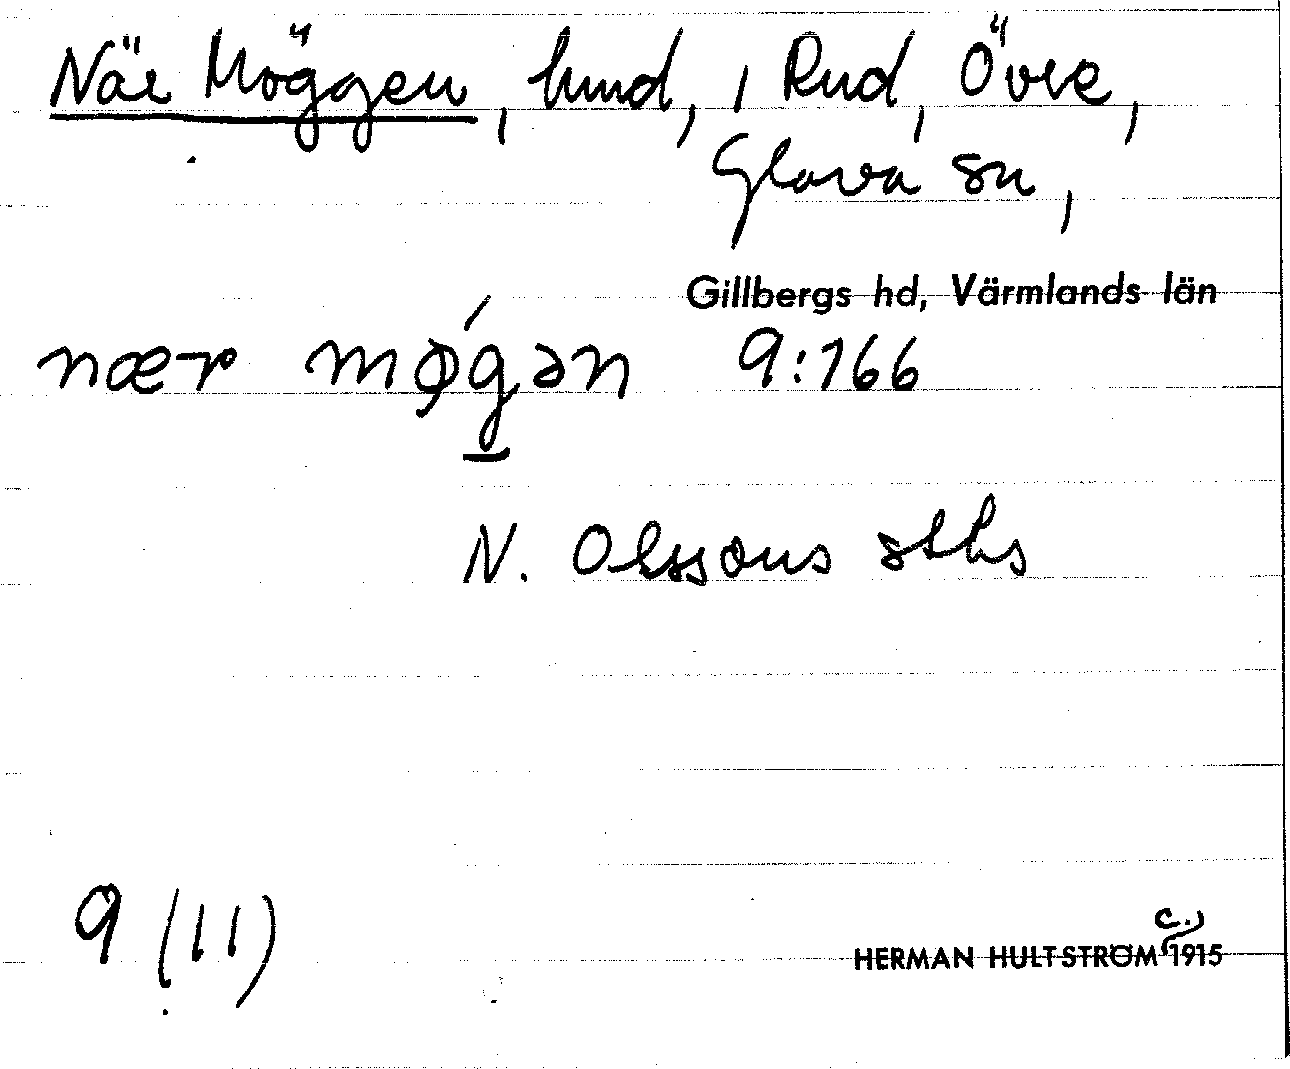 När Möggen, lund, i Rud, Övre,
Glava sn,
Gillbergs hd, Värmlands län
nær møgən 9:166
N. Olssons sths
9 (11)
HERMAN HULTSTRÖM c.) 1915